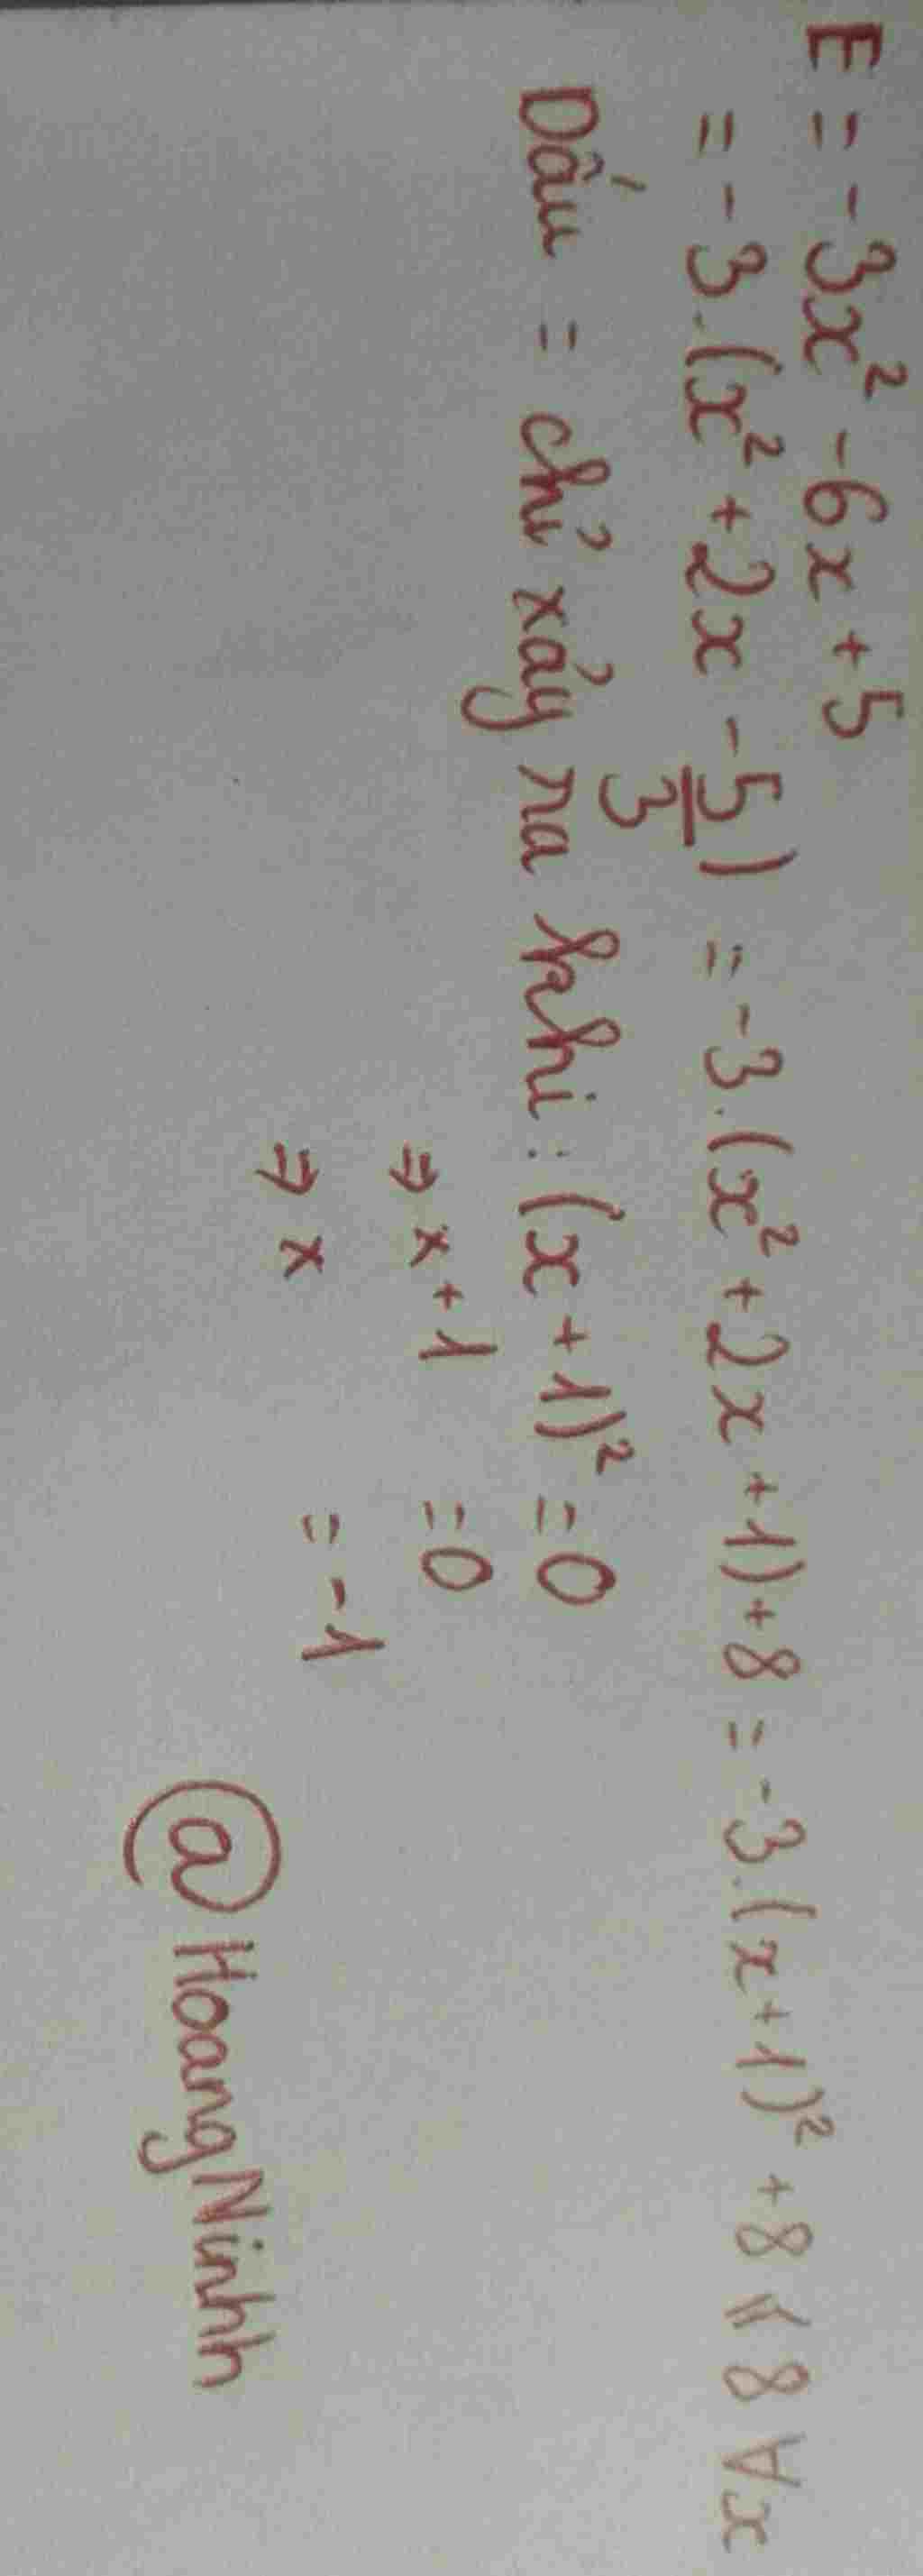 E = -3x² - 6x + 5
= -3.(x² + 2x - 5/3) = -3.(x² + 2x + 1) + 8 = -3.(x + 1)² + 8 ≤ 8 ∀x
Dấu = chỉ xảy ra khi: (x + 1)² = 0
⇒ x + 1 = 0
⇒ x = -1
@HoangNinhh